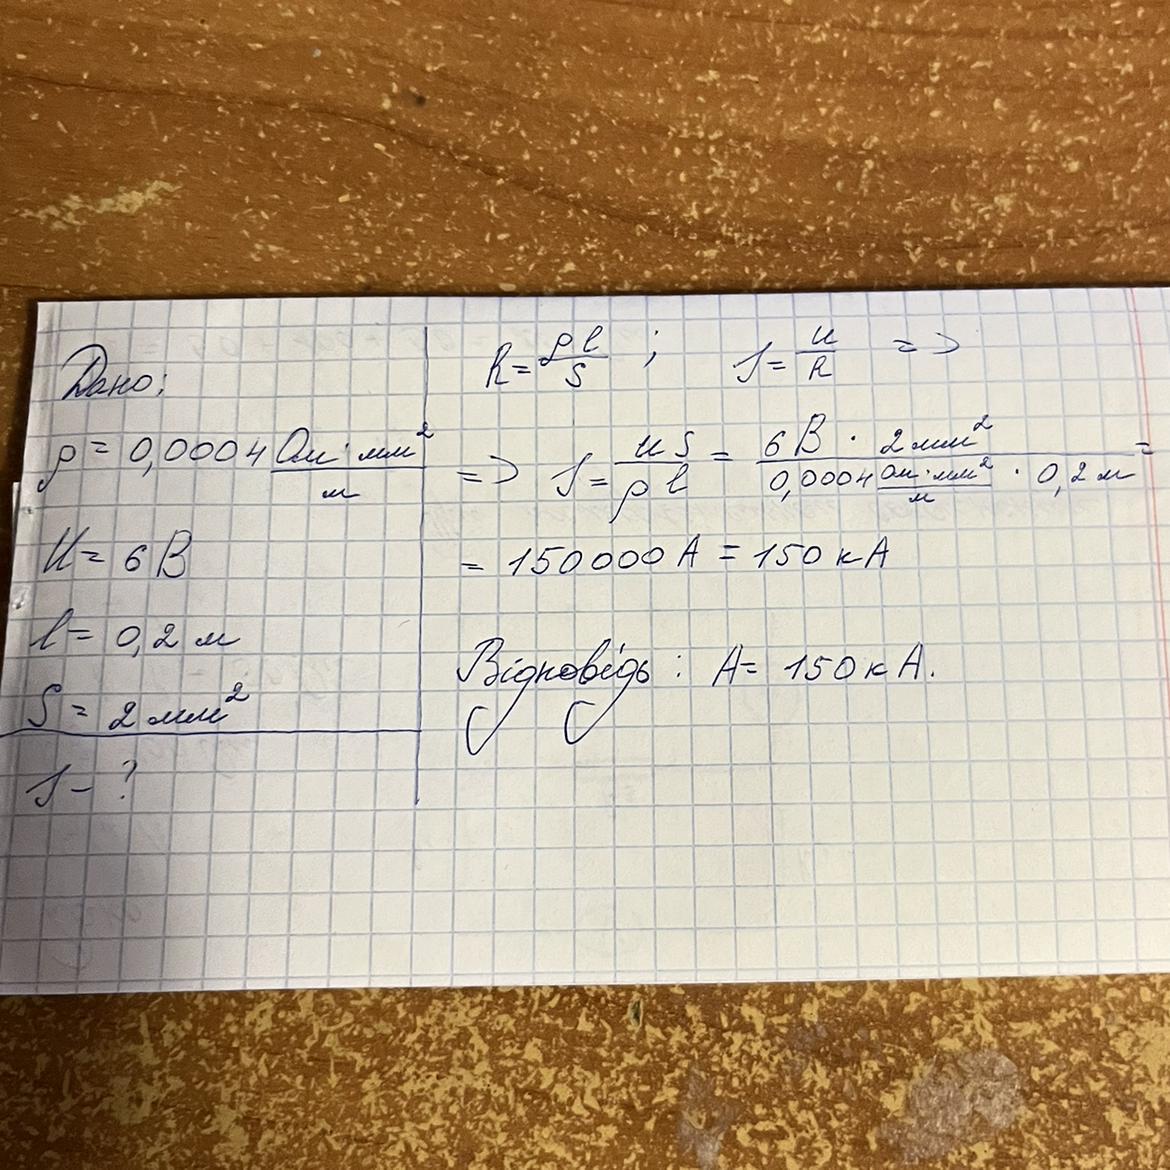 Дано:
ρ = 0,0004 Ом·мм²/м
U = 6 В
l = 0,2 м
S = 2 мм²
I - ?
R = ρl/S ; I = U/R =>
=> I = US/ρl = 6 В · 2 мм² / 0,0004 Ом·мм²/м · 0,2 м =
= 150000 А = 150 кА
Відповідь: А = 150 кА.